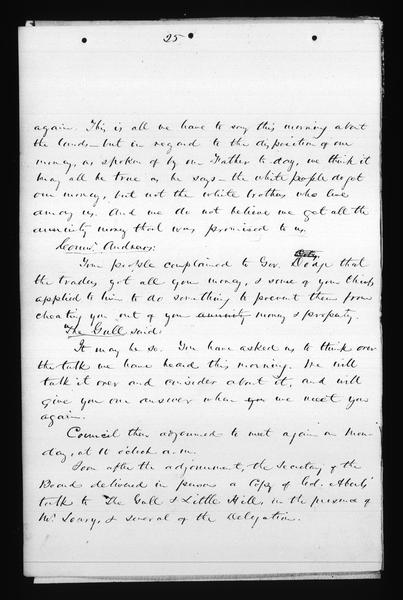 25
again. This is all we have to say this morning about
the lands – but in regard to the disposition of our
money, as spoken of by our Father to-day, we think it
may all be true as he says – the white people do get
our money, but not the white brothers who live
among us. And we do not believe we get all the
annuity money that was promised to us.
Comr. Andrews:
Your people complained to Gov. Dodge that
the traders got all your money, & some of your Chiefs
applied to him to do something to prevent them from
cheating you out of your annuity money & property.
The Gull said:
It may be so. You have asked us to think over
the talk we have heard this morning. We will
talk it over and consider about it, and will
give you our answer when you we meet you
again.
Council then adjourned to meet again on Mon-
day, at 10 o'clock a.m.
Soon after the adjournment, the Secretary of the
Board delivered in person a copy of Col. Abert's
talk to The Gull & Little Hill, in the presence of
Mr. Lowry, & several of the Delegation.